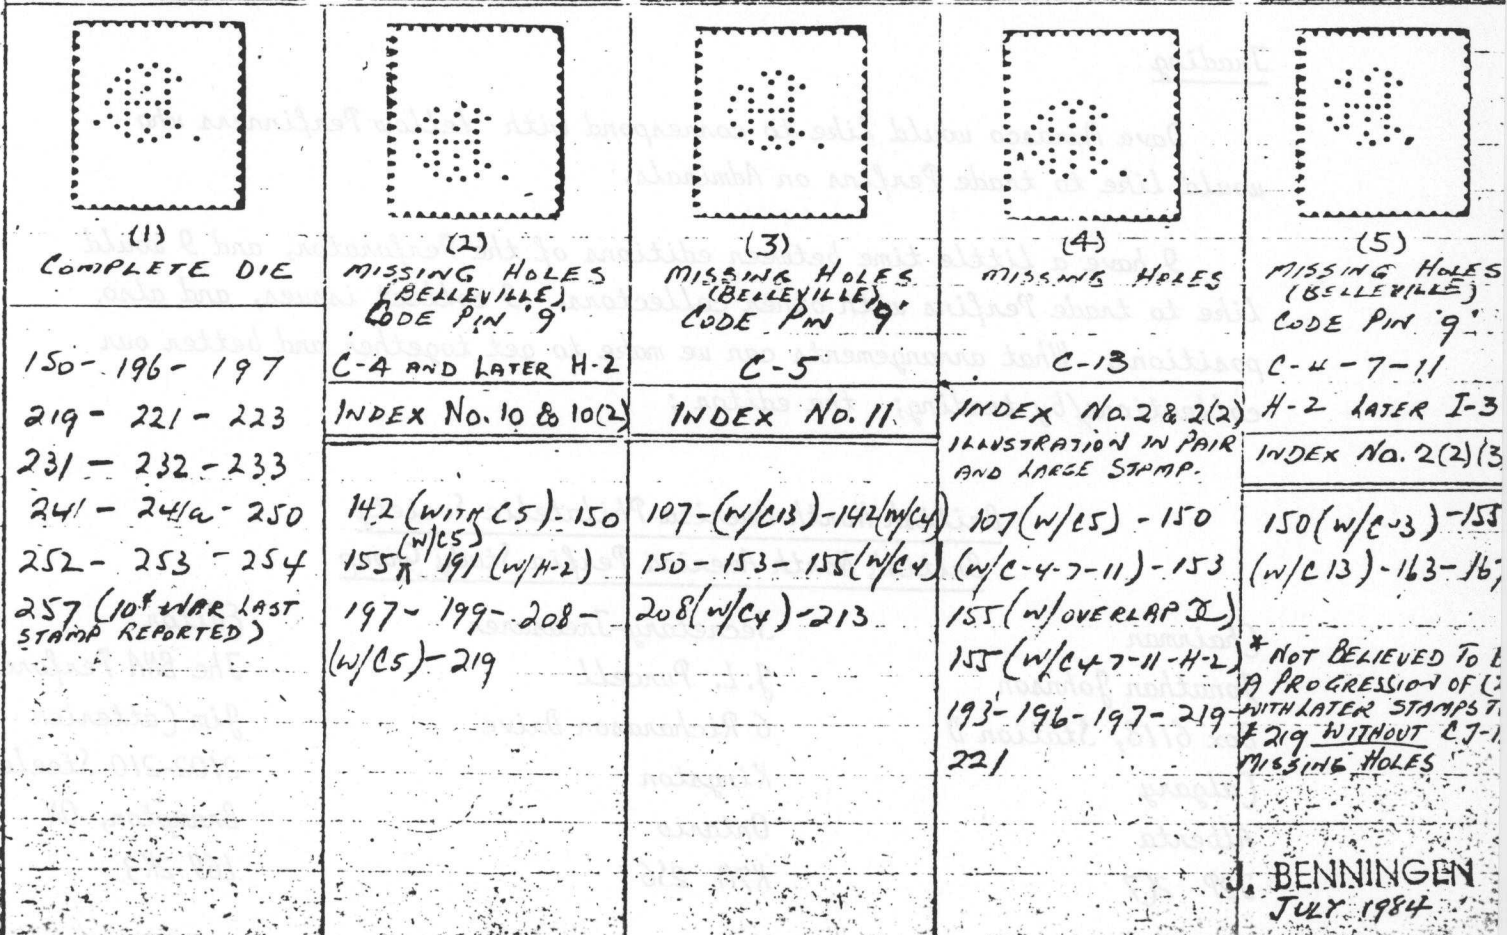 (1)
COMPLETE DIE
150- 196- 197
219 - 221 - 223
231 - 232 - 233
241 - 241a - 250
252 - 253 - 254
257 (10¢ WAR LAST
STAMP REPORTED)
(2)
MISSING HOLES
(BELLEVILLE)
CODE PIN '9'
C-4 AND LATER H-2
INDEX No. 10 & 10(2)
142 (WITH C5) - 150
(W/C5)
155 - 191 (W/H-2)
197 - 199 - 208 -
(W/C5) - 219
(3)
MISSING HOLES
(BELLEVILLE)
CODE PIN '9'
C-5
INDEX No. 11
107 - (W/C13) - 142 (W/C4)
150 - 153 - 155 (W/C4)
208 (W/C4) - 213
(4)
MISSING HOLES
C-13
INDEX No. 2 & 2(2)
ILLUSTRATION IN PAIR
AND LARGE STAMP.
107 (W/C5) - 150
(W/C-4-7-11) - 153
155 (W/OVERLAP
155 (W/C4-7-11-H-2)
193 - 196 - 197 - 219 -
221
(5)
MISSING HOLES
(BELLEVILLE)
CODE PIN '9'
C-4-7-11
H-2 LATER I-3
INDEX No. 2(2)(3
150 (W/C-13) - 155
(W/C13) - 163 - 167
* NOT BELIEVED TO
A PROGRESSION OF
WITH LATER STAMPS
219 WITHOUT
MISSING HOLES
J. BENNINGEN
JULY 1984